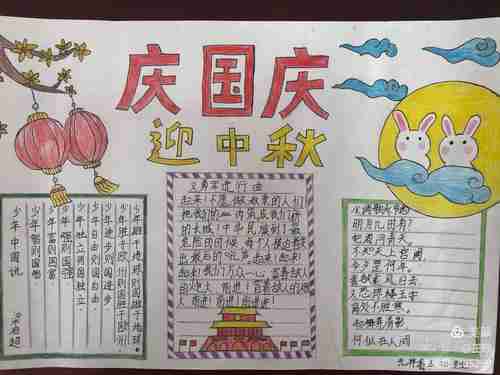 庆国庆
迎中秋
少年中国说
梁启超
少年智则国智
少年富则国富
少年强则国强
少年独立则国独立
少年自由则国自由
少年进步则国进步
少年胜于欧洲则国胜于欧洲
少年雄于地球则国雄于地球
义勇军进行曲
起来！不愿做奴隶的人们
把我们的血肉筑成我们新
的长城！中华民族到了最
危险的时候，每个人被迫着
发出最后的吼声。起来！起
来！起来！我们万众一心，冒着敌人的
炮火，前进！冒着敌人的炮
火，前进！前进！前进进！
明月几时有？
把酒问青天。
不知天上宫阙
今夕是何年。
我欲乘风归去
又恐琼楼玉宇
高处不胜寒。
起舞弄清影
何似在人间